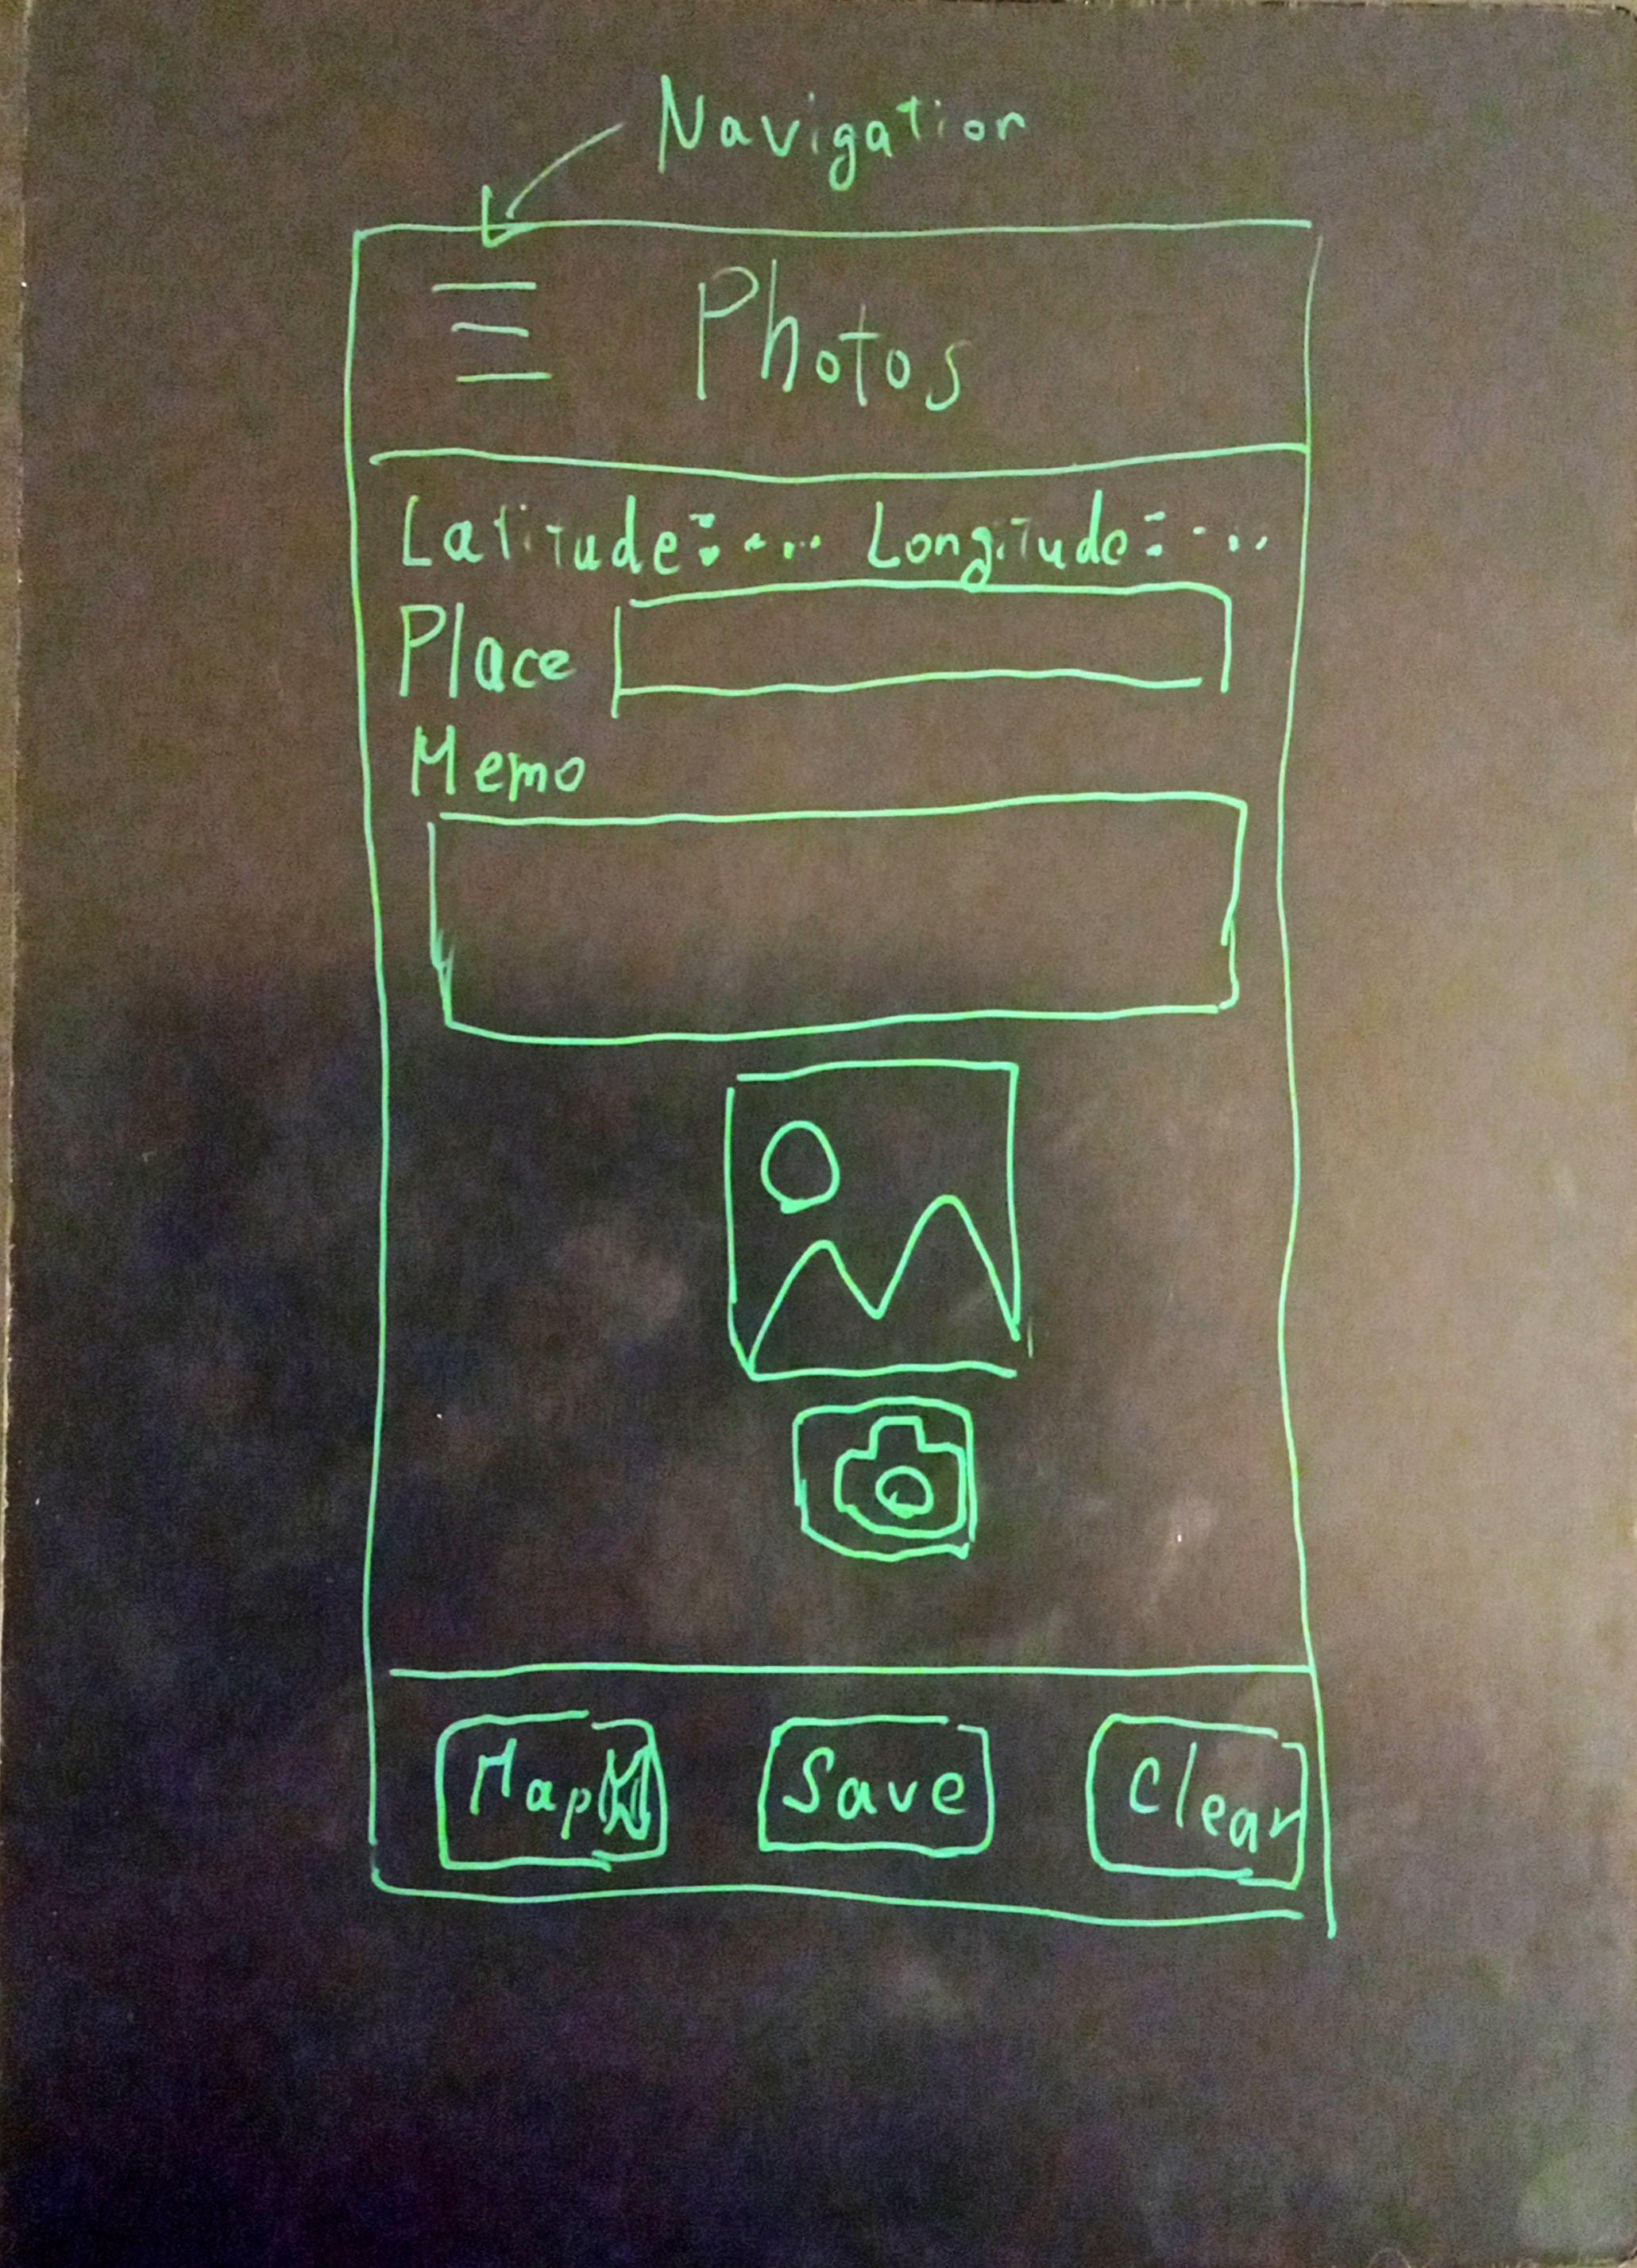 Navigation
Photos
Latitude: ... Longitude: ...
Place
Memo
Map Save Clear